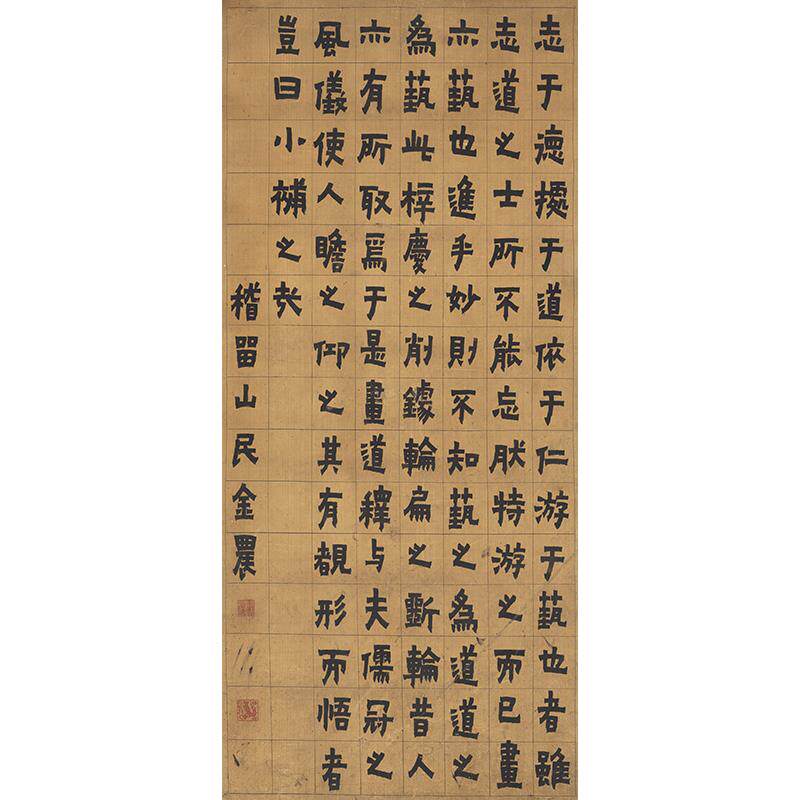 志于德據于道依于仁游于埶也者雖
志道之士所不能忘肰特游之而已畫
亦埶也進乎妙則不知埶之為道道之
為埶此梓慶之削鐻輪扁之斲輪昔人
亦有所取焉于是畫道釋与夫儒冠之
風儀使人瞻之仰之其有覩形而悟者
豈曰小補之哉
稽留山民金農